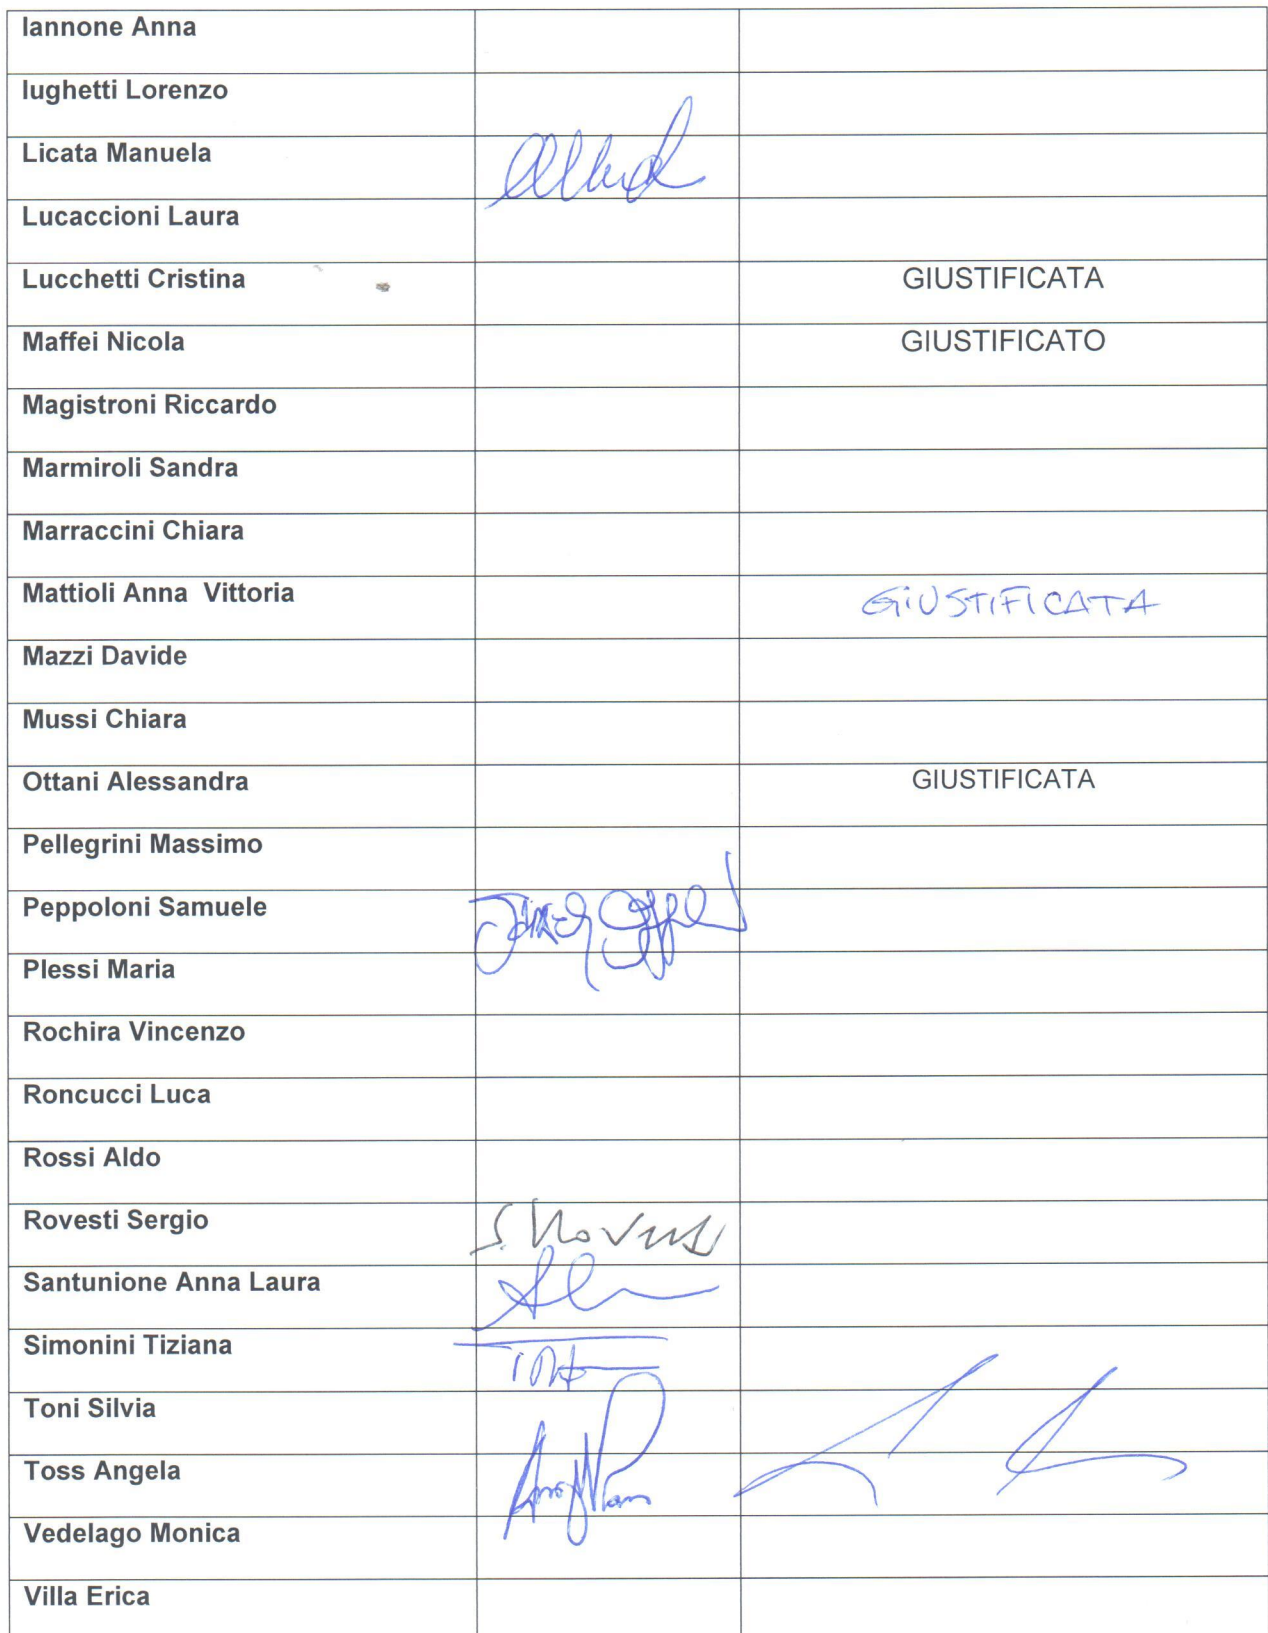 Iannone Anna
Iughetti Lorenzo
Licata Manuela
Lucaccioni Laura
Lucchetti Cristina GIUSTIFICATA
Maffei Nicola GIUSTIFICATO
Magistroni Riccardo
Marmiroli Sandra
Marraccini Chiara
Mattioli Anna  Vittoria GIUSTIFICATA
Mazzi Davide
Mussi Chiara
Ottani Alessandra GIUSTIFICATA
Pellegrini Massimo
Peppoloni Samuele
Plessi Maria
Rochira Vincenzo
Roncucci Luca
Rossi Aldo
Rovesti Sergio
Santunione Anna Laura
Simonini Tiziana
Toni Silvia
Toss Angela
Vedelago Monica
Villa Erica